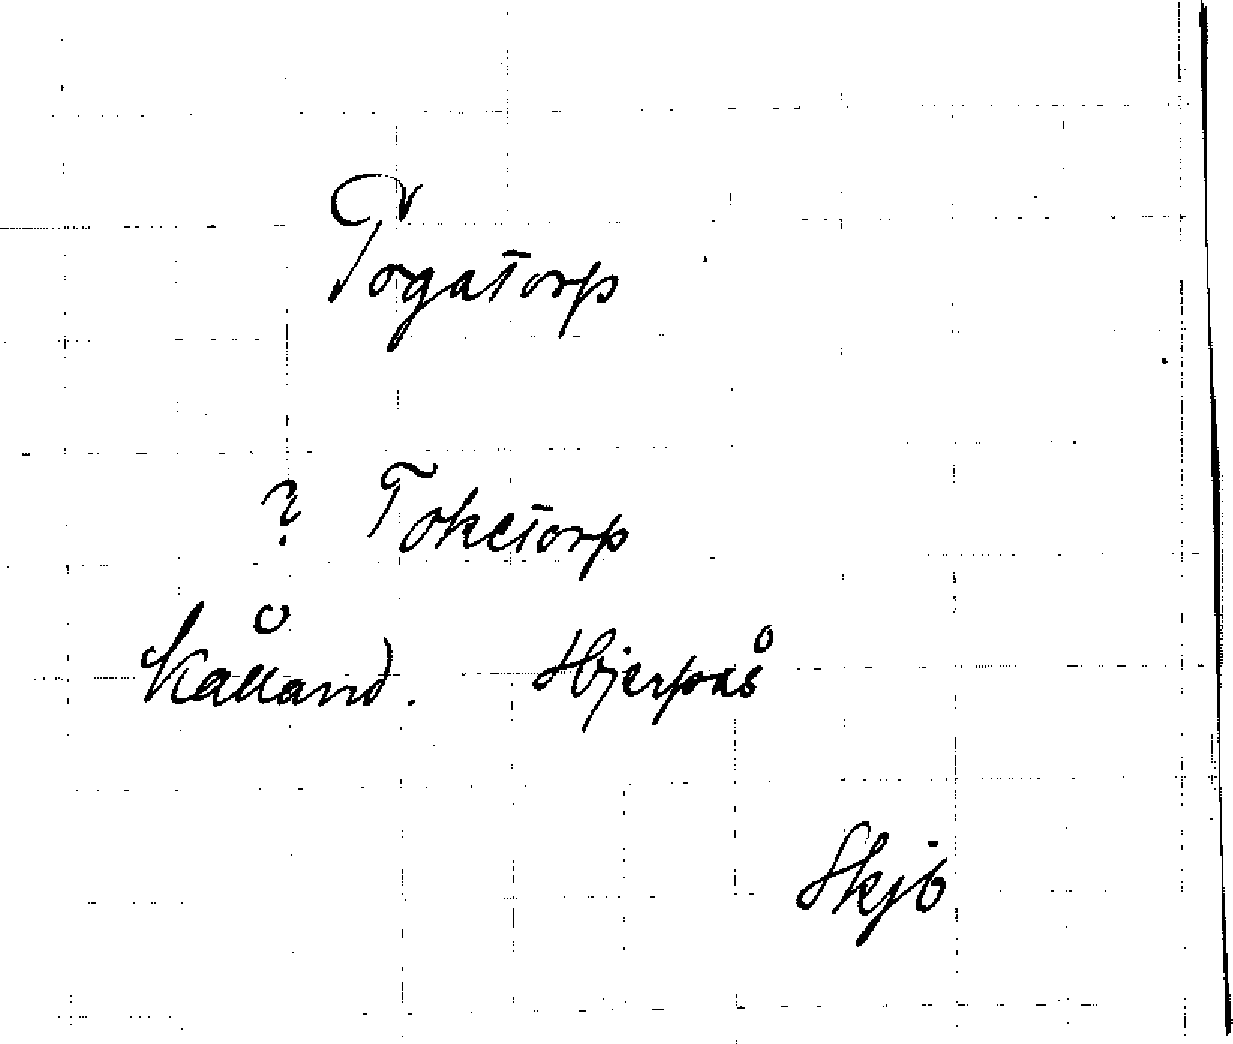 Togatorp
? Toketorp
Kålland. Hjerpås
Skjö